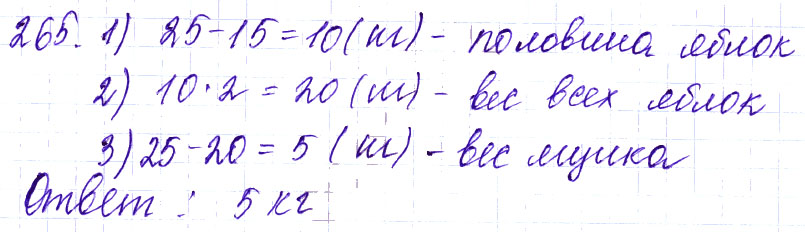 265. 1) 25-15=10(кг) - половина яблок
2) 10·2=20(кг) - вес всех яблок
3) 25-20=5(кг) - вес ящика
Ответ: 5 кг